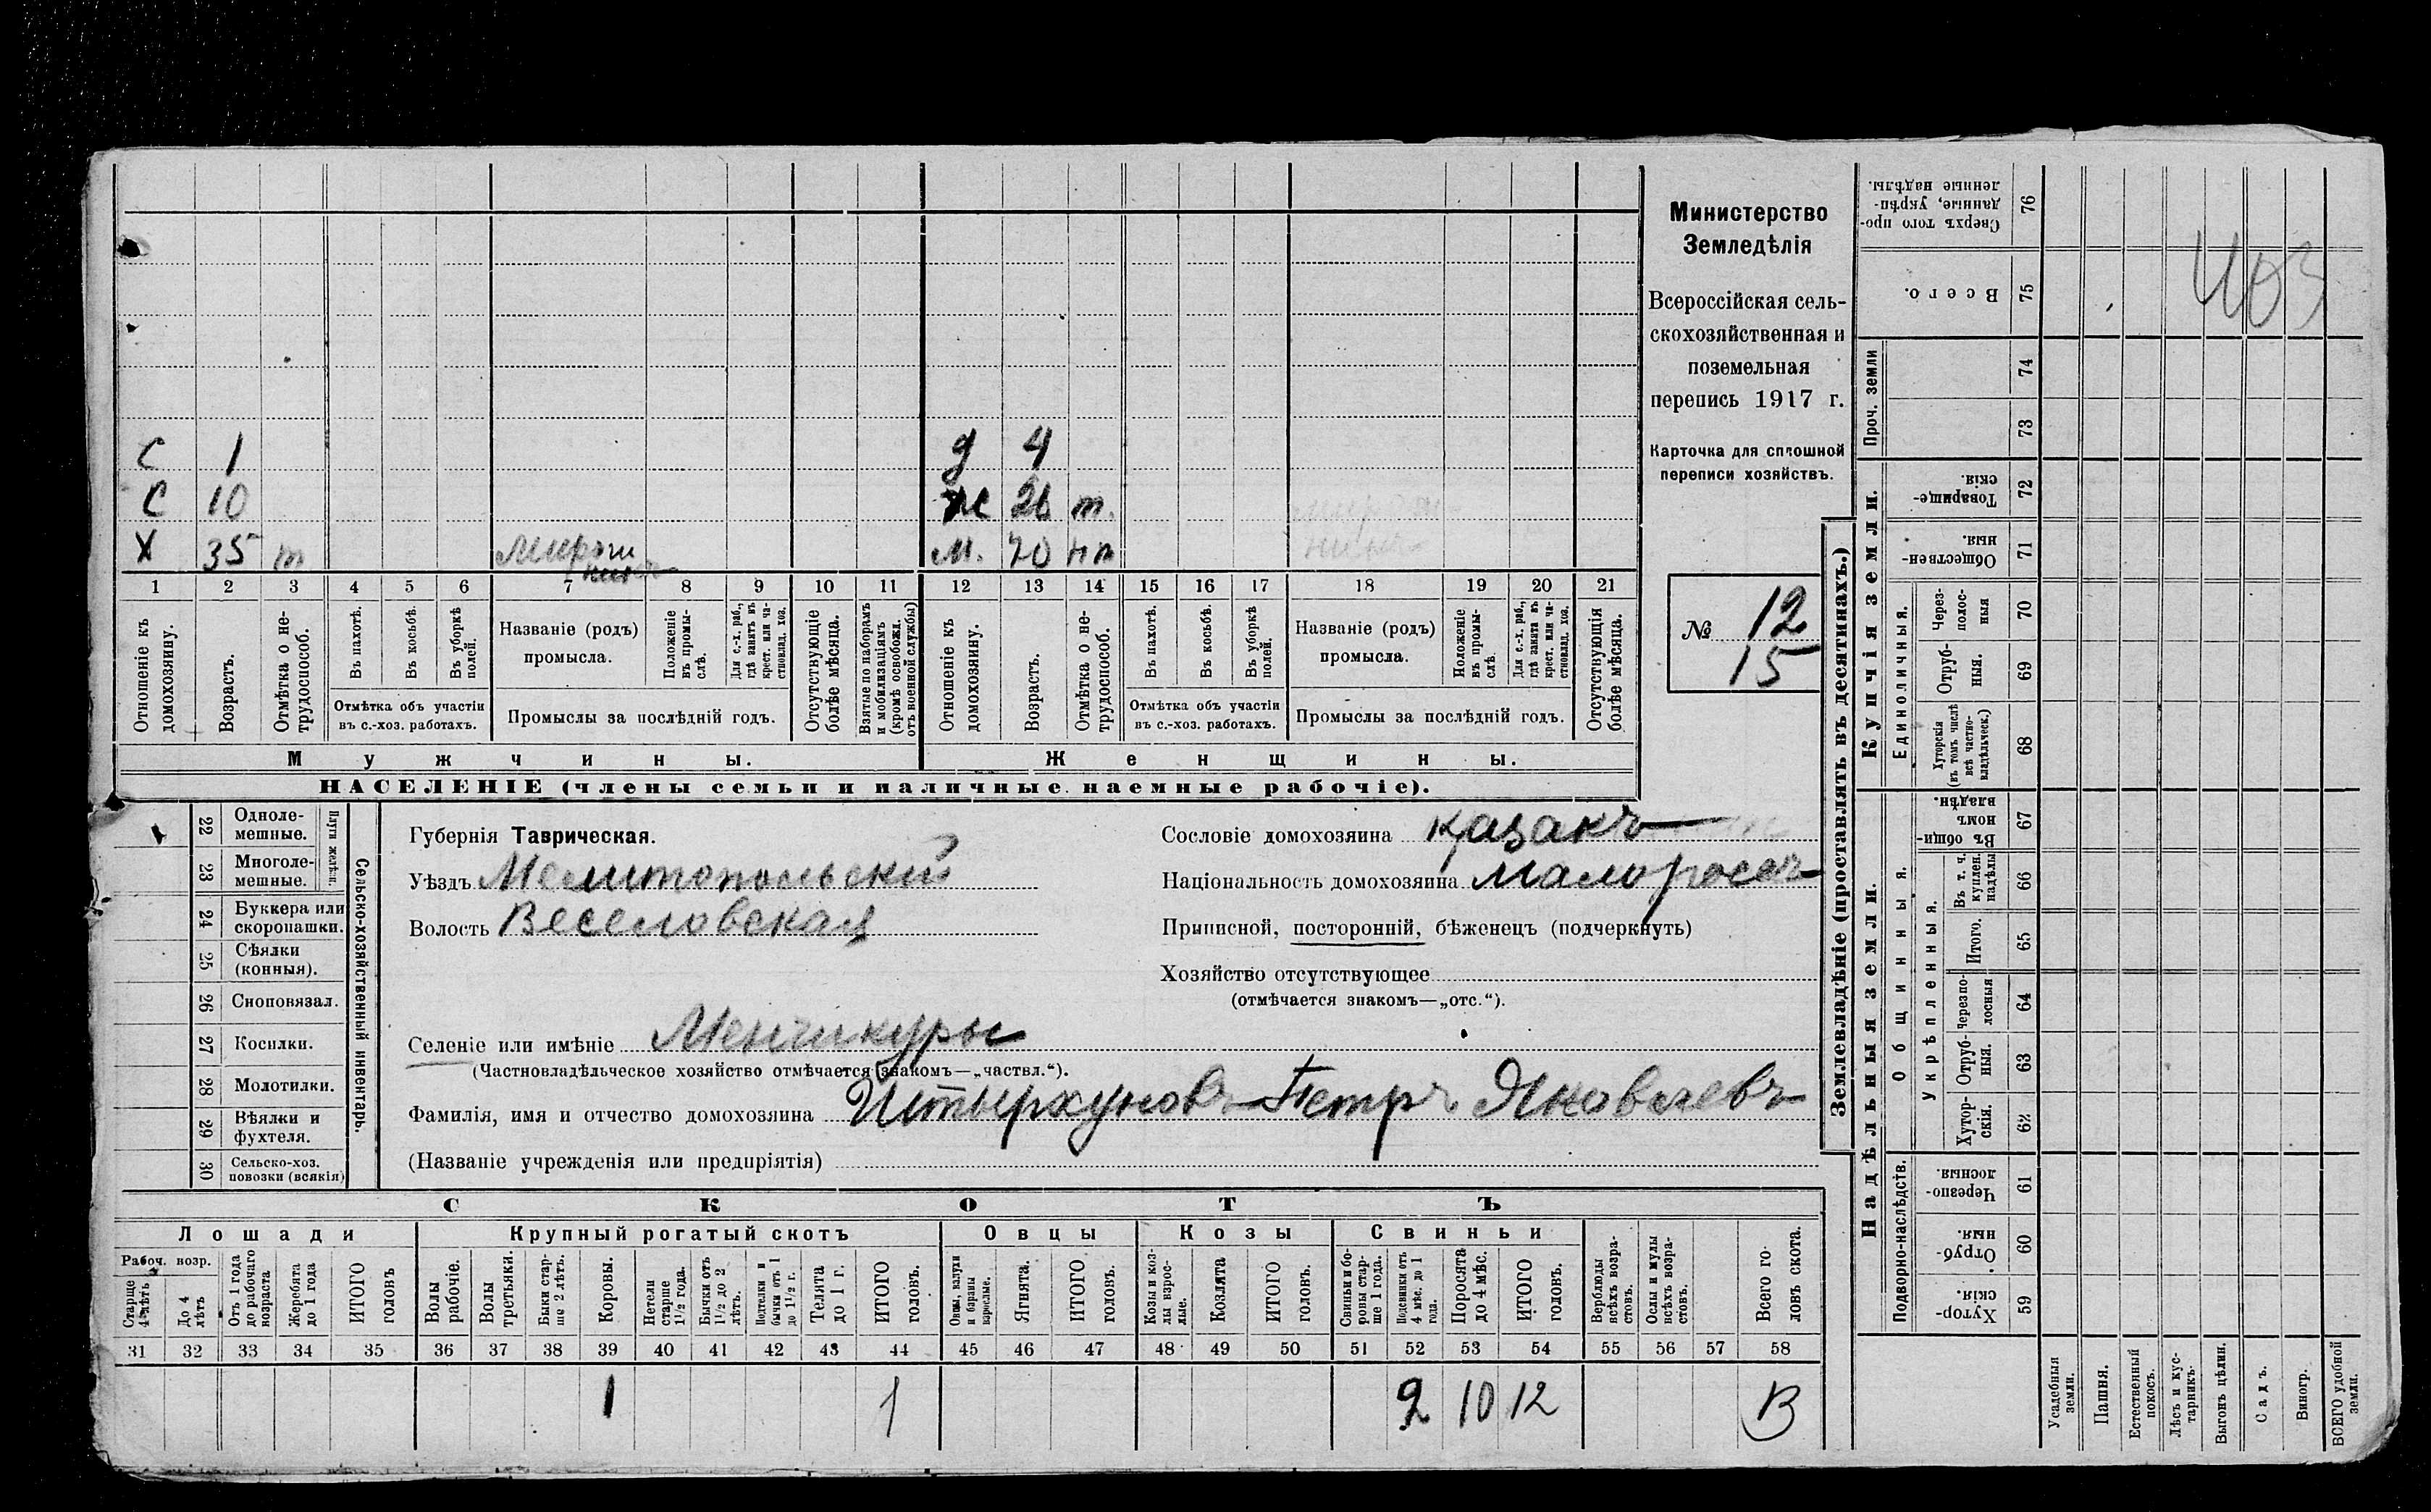 Министерство
Земледѣлія
Всероссійская сель-
скохозяйственная и
поземельная
перепись 1917 г.
Карточка для сплошной
переписи хозяйствъ.
№ 12
15
С 1
С 10
Х 35 т
д 4
ж 26 т.
м. 70 нт
1 2 3 4 5 6 7 8 9 10 11 12 13 14 15 16 17 18 19 20 21
Отношеніе къ домохозяину.
Возрастъ.
Отмѣтка о не-трудоспособ.
Въ пахотѣ.
Въ косьбѣ.
Въ уборкѣ полей.
Отмѣтка объ участіи
въ с.-хоз. работахъ.
Названіе (родъ)
промысла.
Положеніе въ промы-слѣ.
Для с.-х. раб., гдѣ занятъ въ крест. или ча-стновлад. хоз.
Промыслы за послѣдній годъ.
Отсутствующіе болѣе мѣсяца.
Взятые по наборамъ и мобилизаціямъ (кромѣ освобожд. отъ военной службы)
Отношеніе къ домохозяину.
Возрастъ.
Отмѣтка о не-трудоспособ.
Въ пахотѣ.
Въ косьбѣ.
Въ уборкѣ полей.
Отмѣтка объ участіи
въ с.-хоз. работахъ.
Названіе (родъ)
промысла.
Положеніе въ промы-слѣ.
Для с.-х. раб., гдѣ занята въ крест. или ча-стновлад. хоз.
Промыслы за послѣдній годъ.
Отсутствующія болѣе мѣсяца.
Мужчины.
Женщины.
НАСЕЛЕНІЕ (члены семьи и наличные наемные рабочіе).
Сельско-хозяйственный инвентарь.
Плуги желѣз.
22 Одноле-мешные.
23 Многоле-мешные.
24 Буккера или скоропашки.
25 Сѣялки (конныя).
26 Сноповязал.
27 Косилки.
28 Молотилки.
29 Вѣялки и фухтеля.
30 Сельско-хоз. повозки (всякія)
Губернія Таврическая.
Уѣздъ Мелитопольскій
Волость Веселовская
Сословіе домохозяина казакъ
Національность домохозяина малоросъ
Приписной, посторонній, бѣженецъ (подчеркнуть)
Хозяйство отсутствующее
(отмѣчается знакомъ—„отс.“).
Селеніе или имѣніе Менчикуры
(Частновладѣльческое хозяйство отмѣчается знакомъ—„частвл.“).
Фамилія, имя и отчество домохозяина Петръ Яковлевъ
(Названіе учрежденія или предпріятія)
СКОТЪ
Лошади
Крупный рогатый скотъ
Овцы
Козы
Свиньи
Рабоч. возр.
Старше 4 лѣтъ
До 4 лѣтъ
Отъ 1 года до рабочаго возраста
Жеребята до 1 года
ИТОГО головъ
Волы рабочіе.
Волы третьяки.
Быки стар-ше 2 лѣтъ.
Коровы.
Нетели старше 1½ года.
Бычки отъ 1½ до 2 лѣтъ.
Подтелки и бычки отъ 1 до 1½ г.
Телята до 1 г.
ИТОГО головъ.
Овцы, валухи и бараны взрослые.
Ягнята.
ИТОГО головъ.
Козы и коз-лы взрос-лые.
Козлята
ИТОГО головъ.
Свиньи и бо-ровы стар-ше 1 года.
Подсвинки отъ 4 мѣс. до 1 года.
Поросята до 4 мѣс.
ИТОГО головъ.
Верблюды всѣхъ возра-стовъ.
Ослы и мулы всѣхъ возра-стовъ.
Всего го-ловъ скота.
31 32 33 34 35 36 37 38 39 40 41 42 43 44 45 46 47 48 49 50 51 52 53 54 55 56 57 58
1 1 2 10 12 13
Землевладѣніе (проставлять въ десятинахъ.)
Надѣльныя земли.
Купчія земли.
Проч. земли
Подворно-наслѣдств.
Общинныя.
Укрѣпленныя.
Единоличныя.
Сверхъ того про-данные, укрѣп-ленные надѣлы. 76
Всего. 75
74
73
Товарище-скія. 72
Обществен-ныя. 71
Через-полос-ныя 70
Отруб-ныя. 69
Хуторскія (въ томъ числѣ всѣ частно-владѣльческ.) 68
Въ общи-номъ владѣн. 67
Въ т. ч. куплен. надѣлы 66
Итого. 65
Черезпо-лосныя 64
Отруб-ныя. 63
Хутор-скія. 62
Черезпо-лосныя. 61
Отруб-ныя. 60
Хутор-скія. 59
Усадебныя земли.
Пашня.
Естественный покосъ.
Лѣсъ и кус-тарникъ.
Выгонъ цѣлин.
Садъ.
Виногр.
ВСЕГО удобной земли.
403